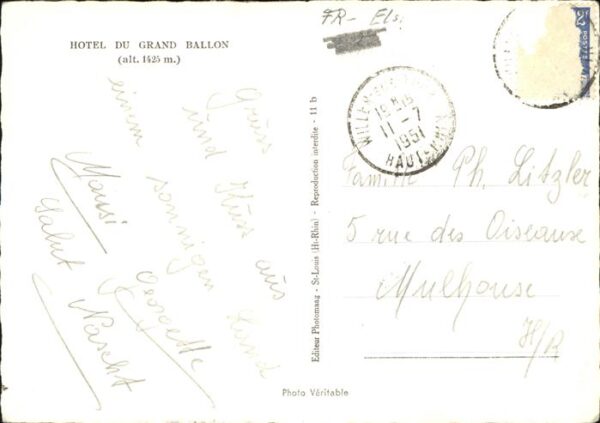 HOTEL DU GRAND BALLON
(alt. 1425 m.)
FR- Els.
WILLER
11-7
1951
HAUT-RHIN
Gruss und Kuss aus
einem sonnigen Land
Georgette
Salut
Editeur Photomaag - St-Louis (Ht-Rhin) - Reproduction interdite - 11 b
Famille Ph. Litzler
5 rue des Oiseaux
Mulhouse
H/R
Photo Véritable